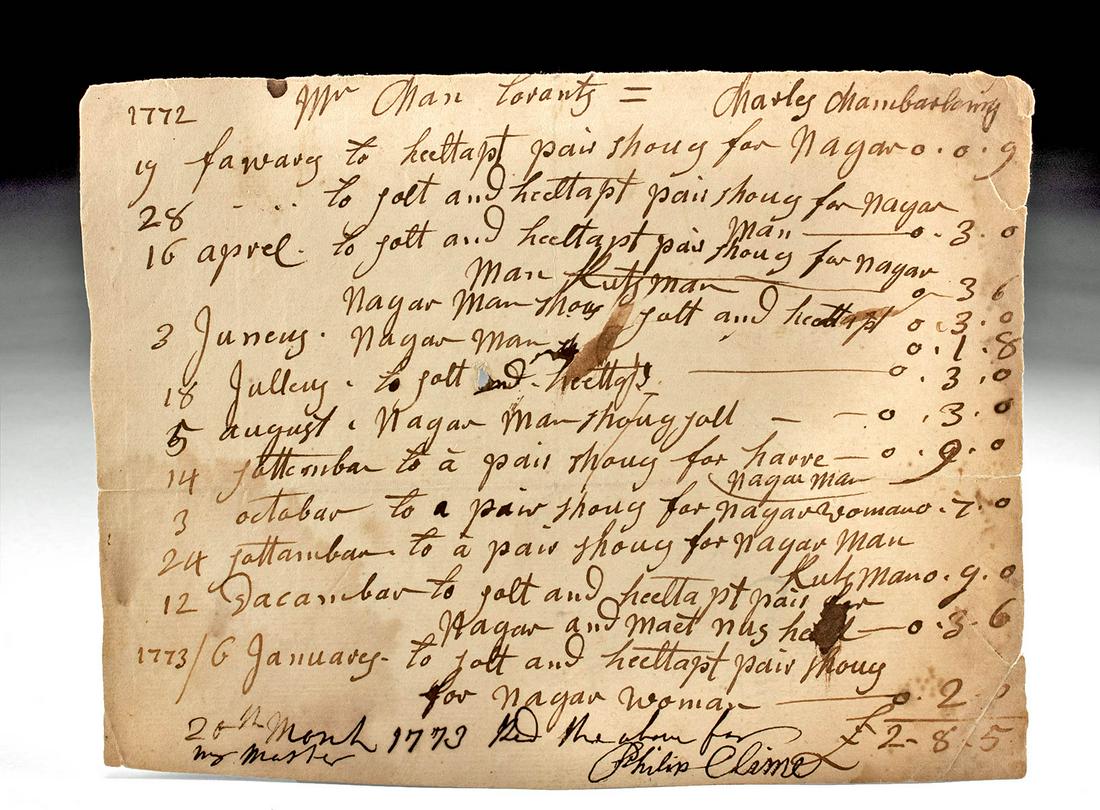 1772 Mr Man Corants = Charles
19 fawarey to heeltapt pair shoug for Nagar 0.0.9
28 to solt and heeltapt pair shoug for Nagar
Man 0.3.0
16 aprel. to solt and heeltapt pair shoug for Nagar
Man Kutsman 0 3 6
Nagar Man shoug solt and heeltapt 0.3.0
3 Juneus. Nagar Man 0.1.8
18 Julleus. to solt and heeltapt 0.3.0
5 august. Nagar Man shoug solt — 0.3.0
14 sattembar to à pair shoug for harre — 0.9.0
Nagar Man
3 octobar to a pair shoug for Nagar woman 0.7.0
24 sottambar. to à pair shoug for Nagar Man
Kutsman 0.9.0
12 Dacambar to solt and heeltapt pair for
Nagar and 0.3.6
1773/6 January to solt and heeltapt pair shoug
for Nagar woman 0.2.0
£2-8-5
20th Month 1773 Red the above for
my Master Philip Clime